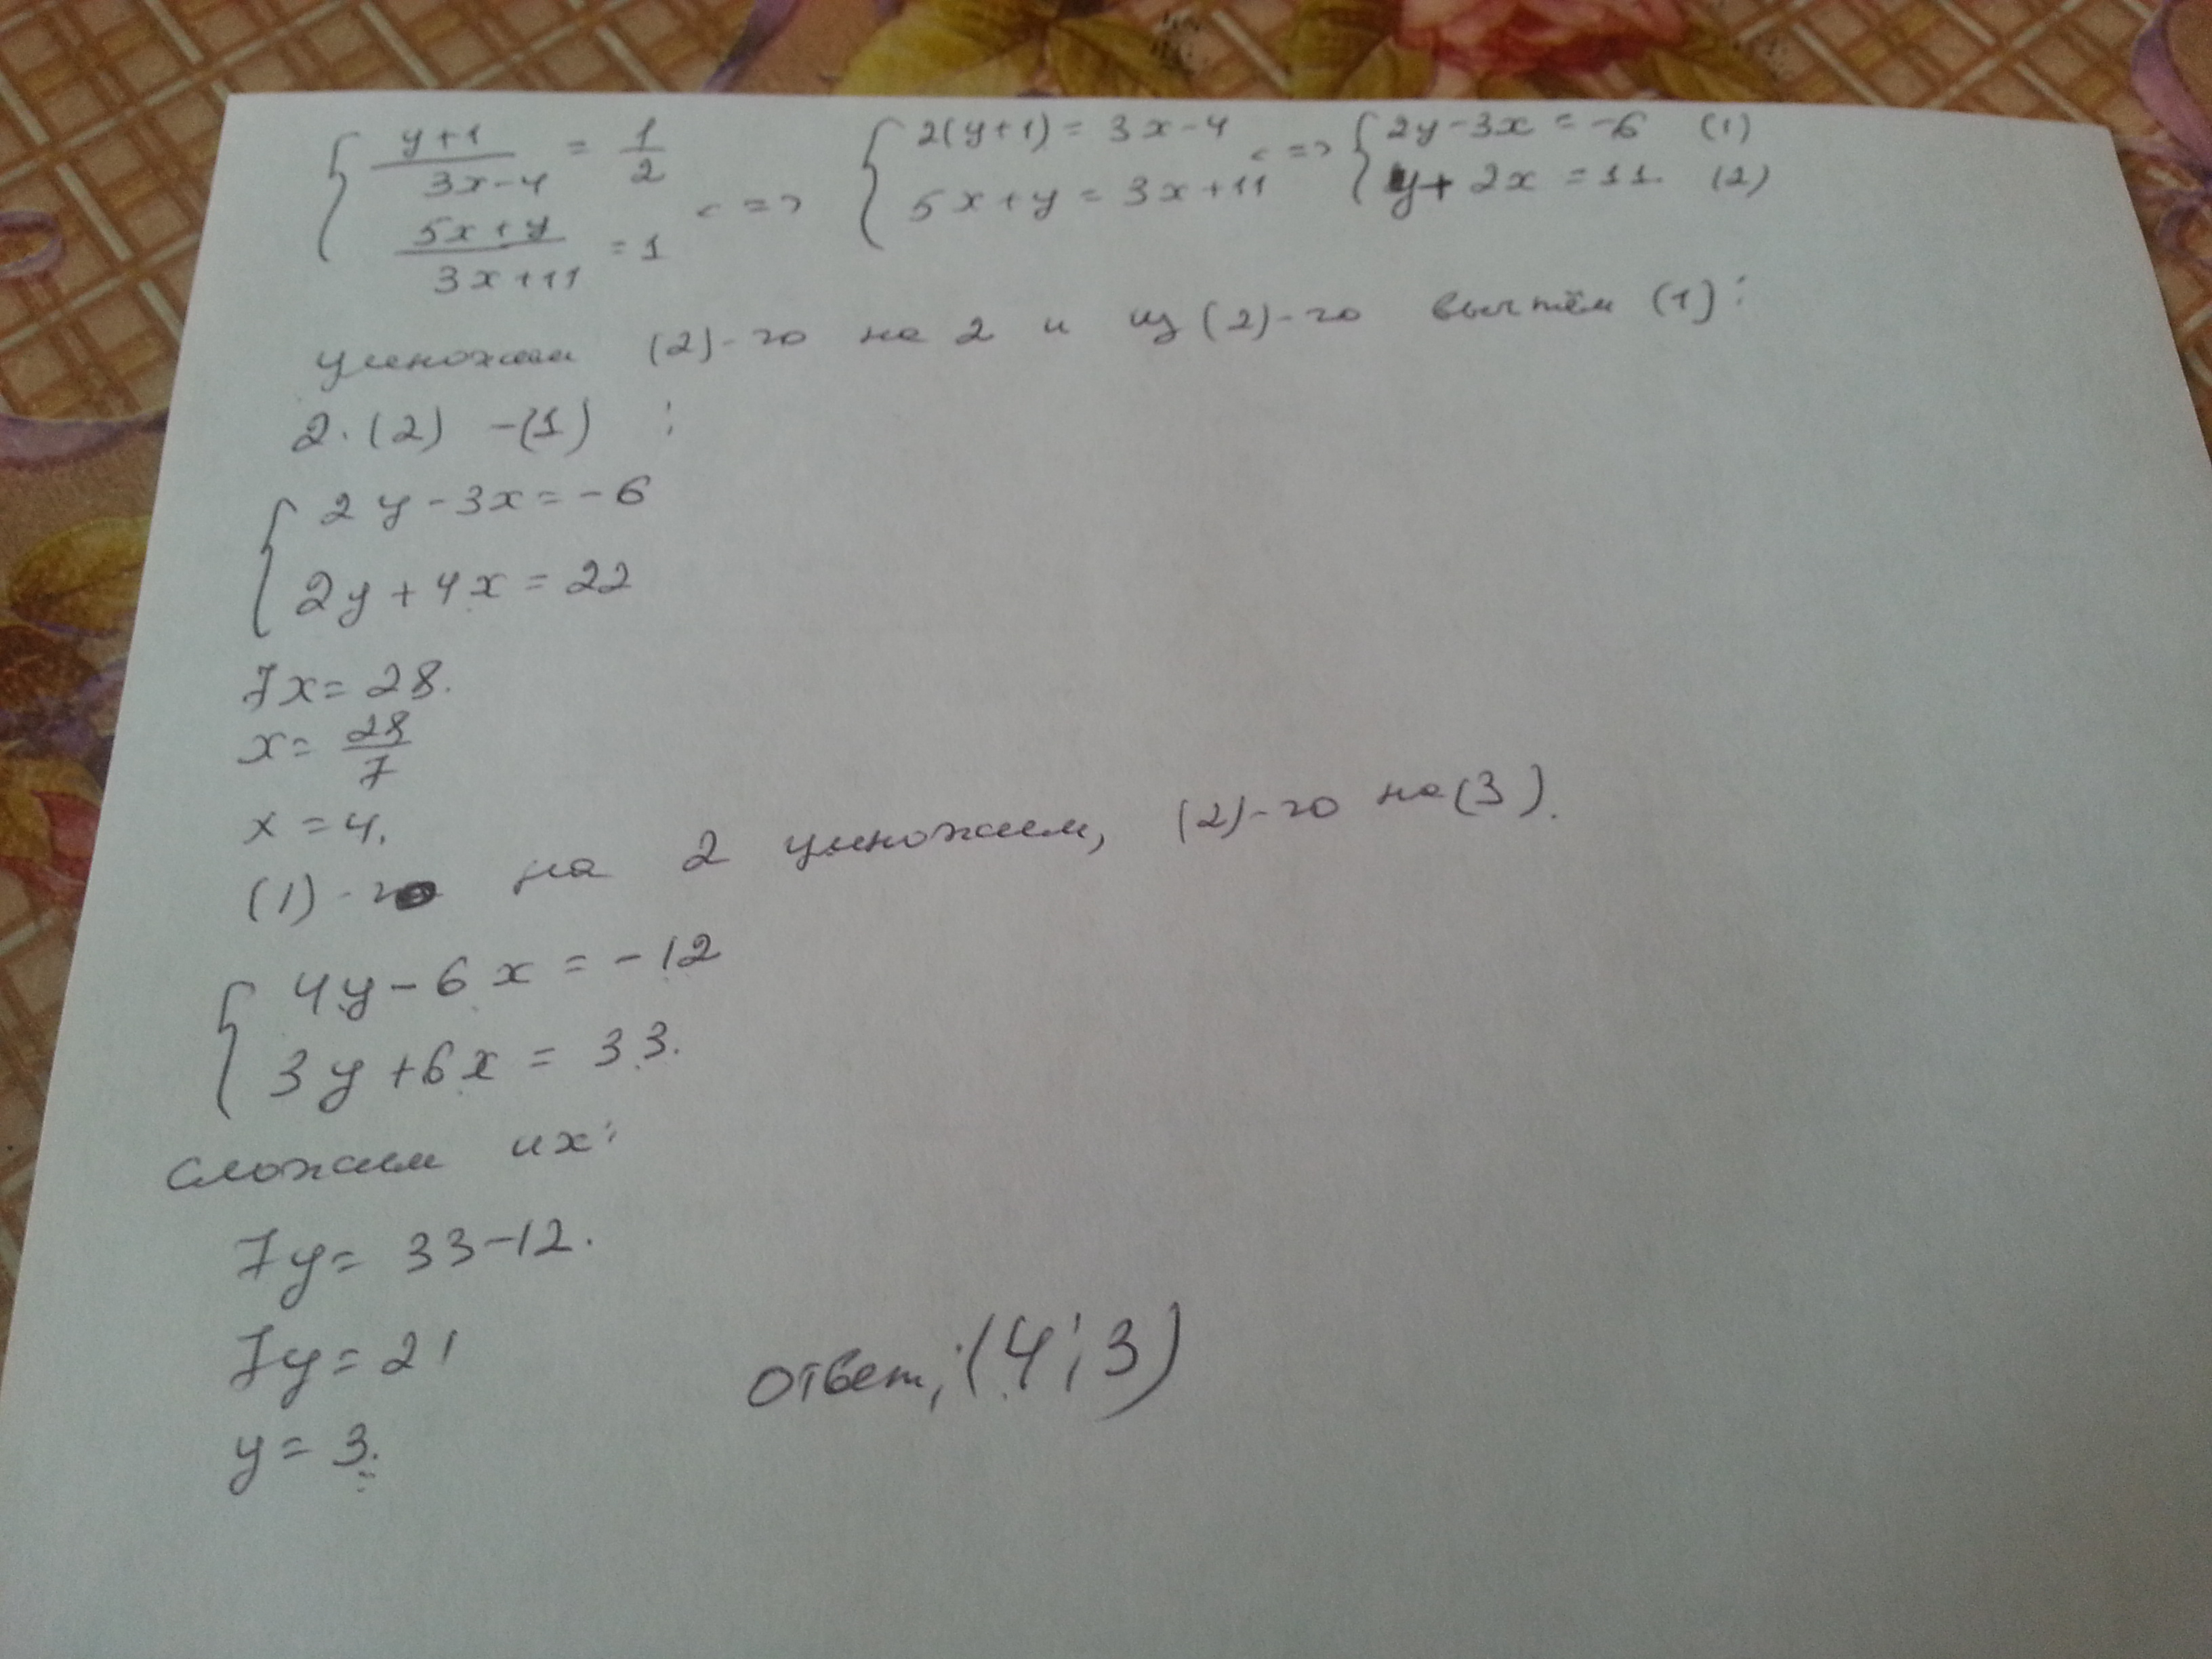 { y+1/3x-4 = 1/2 <=> { 2(y+1) = 3x-4 <=> { 2y-3x = -6 (1)
5x+y/3x+11 = 1 5x+y = 3x+11 y+2x = 11. (2)
умножим (2)-го на 2 и из (2)-го вычтем (1):
2·(2) -(1) :
{ 2y-3x=-6
2y+4x=22
7x=28.
x= 28/7
x=4.
(1)-го на 2 умножим, (2)-го на (3).
{ 4y-6x=-12
3y+6x=33.
Сложим их:
7y= 33-12.
7y=21
y=3.
Ответ: (4;3)